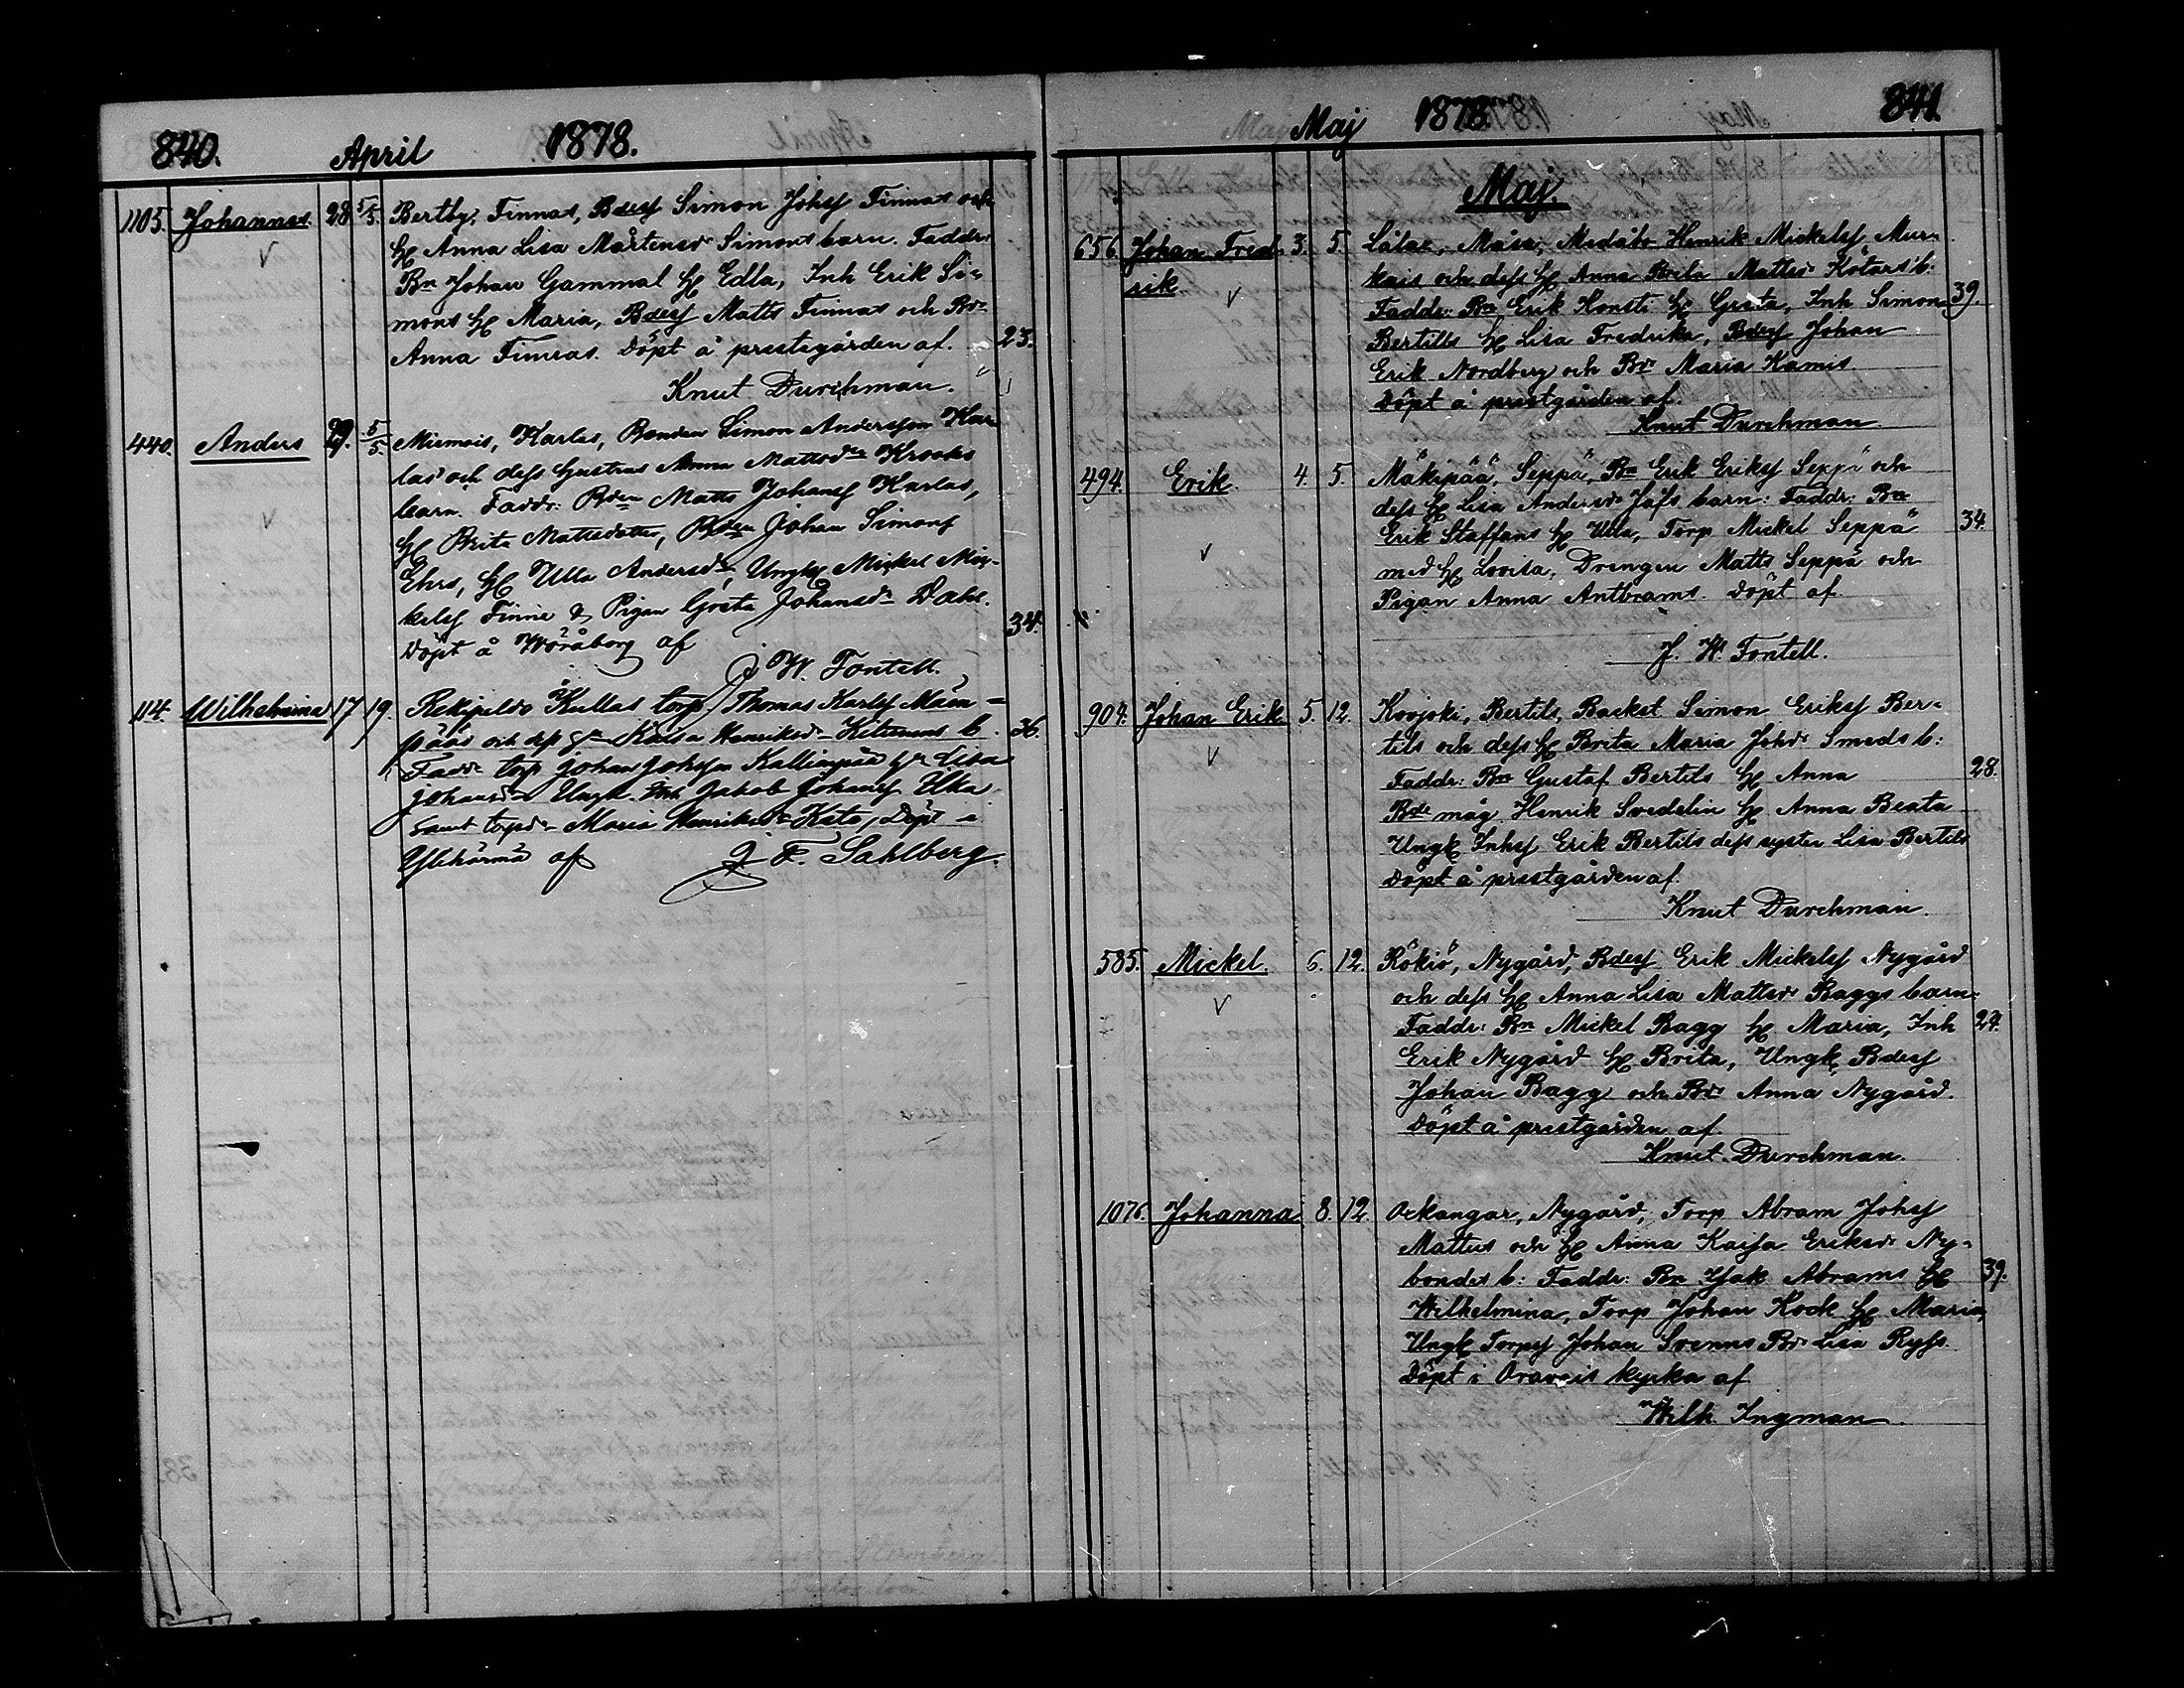 840. April 1878.
1105. Johannes. 28 5/5. Bertby, Finnas, Bdesf Simon Johsf Finnas och
Hu Anna Lisa Mårtensdr Simons barn. Faddr:
Bn Johan Gammal Hu Edla, Inh Erik Si=
mons Hu Maria, Bdesf Matts Finnas och Bdr
Anna Finnas. Döpt å prestegården af. 23.
Knut Durchman.
440. Anders 29. 5/5. Miemois, Karlas, Bonden Simon Andersson Kar
las och dess hustrus Anna Mattsdr Krooks
barn. Faddr: Bden Matts Johansf Karlas,
Hu Brita Mattsdotter, Bden Johan Simonsf
Ehrs, Hu Ulla Andersdr, Ungk Mickel Mic-
kelsf Finne & Pigan Greta Johansdr Dahl.
Döpt å Wöråborg af 34.
J. W. Fontell.
114. Wilhelmina 17 19. Rekipeldo Kullas torp. Thomas Karlsf Mäen=
pääs och dess Hu Kaisa Henriksdr b. 36.
Faddr torp Johan Johansson Kallinpää Hu Lisa
Johansdr Ungk. Inh Jakob Johansf
samt torpdr Maria Henriksdr Döpt i
Ylihärmä af J. F. Sahlberg.
Maj 1878 841.
Maj.
656. Johan Fred- 3. 5. Lålax, Måsa, Henrik Mickelsf Mur-
rik. kais och dess Hu Anna Brita Mattsdr Kotars b:
Faddr: Bn Erik Konsti Hu Greta, Inh Simon 39.
Bertills Hu Lisa Fredrika, Bdesf Johan
Erik Nordberg och Bdr Maria Kamis.
Döpt å prestgården af.
Knut Durchman.
494. Erik. 4. 5. Mäkipää, Seppä, Bn Erik Eriksf Seppä och
dess Hu Lisa Andersdr Jåfs barn: Faddr: Bn
Erik Staffans Hu Ulla, Torp Mickel Seppä 34.
med Hu Lovisa, Drengen Matts Seppä och
Pigan Anna Antbrams. Döpt af.
J. W. Fontell.
904. Johan Erik 5. 12. Kovjoki, Bertils, Backst Simon Eriksf Ber-
tils och dess Hu Brita Maria Johsdr Smeds b:
Faddr: Bn Gustaf Bertils Hu Anna 28.
Bde måg Henrik Svedelin Hu Anna Beata
Ungk Inhsf Erik Bertils dess syster Lisa Bertils
Döpt å prestgården af.
Knut Durchman.
585. Mickel. 6. 12. Rökiö, Nygård, Bdesf Erik Mickelsf Nygård
och dess Hu Anna Lisa Mattsdr Baggs barn.
Faddr: Bn Mickel Bagg Hu Maria, Inh 27.
Erik Nygård Hu Brita, Ungk Bdesf
Johan Bagg och Bdr Anna Nygård.
Döpt å prestgården af.
Knut Durchman.
1076. Johanna 8. 12. Ockangar, Nygård, Torp Abram Johsf
Mattus och Hu Anna Kajsa Eriksdr Ny-
bondes b: Faddr: Bn Isak Abrams Hu 39.
Wilhelmina, Torp Johan Kock Hu Maria,
Ungk Torpsf Johan Svenns Bdr Lisa Ryss.
Döpt i Oravais kyrka af.
Wilh Ingman.